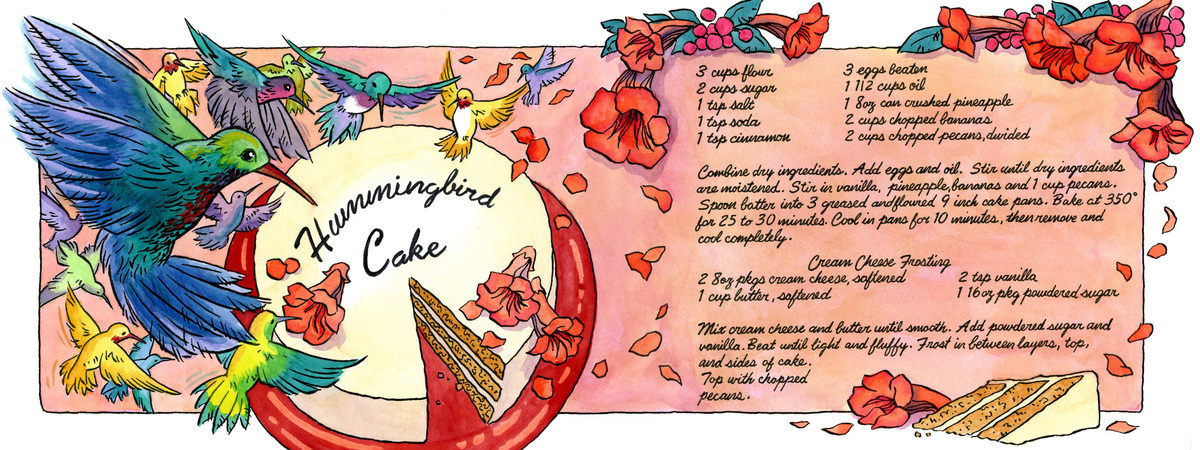 Hummingbird
Cake
3 cups flour
2 cups sugar
1 tsp salt
1 tsp soda
1 tsp cinnamon
3 eggs beaten
1 1/2 cups oil
1 8oz can crushed pineapple
2 cups chopped bananas
2 cups chopped pecans, divided
Combine dry ingredients. Add eggs and oil. Stir until dry ingredients
are moistened. Stir in vanilla, pineapple, bananas and 1 cup pecans.
Spoon batter into 3 greased and floured 9 inch cake pans. Bake at 350°
for 25 to 30 minutes. Cool in pans for 10 minutes, then remove and
cool completely.
Cream Cheese Frosting
2 8oz pkgs cream cheese, softened
1 cup butter, softened
2 tsp vanilla
1 16oz pkg powdered sugar
Mix cream cheese and butter until smooth. Add powdered sugar and
vanilla. Beat until light and fluffy. Frost in between layers, top,
and sides of cake.
Top with chopped
pecans.